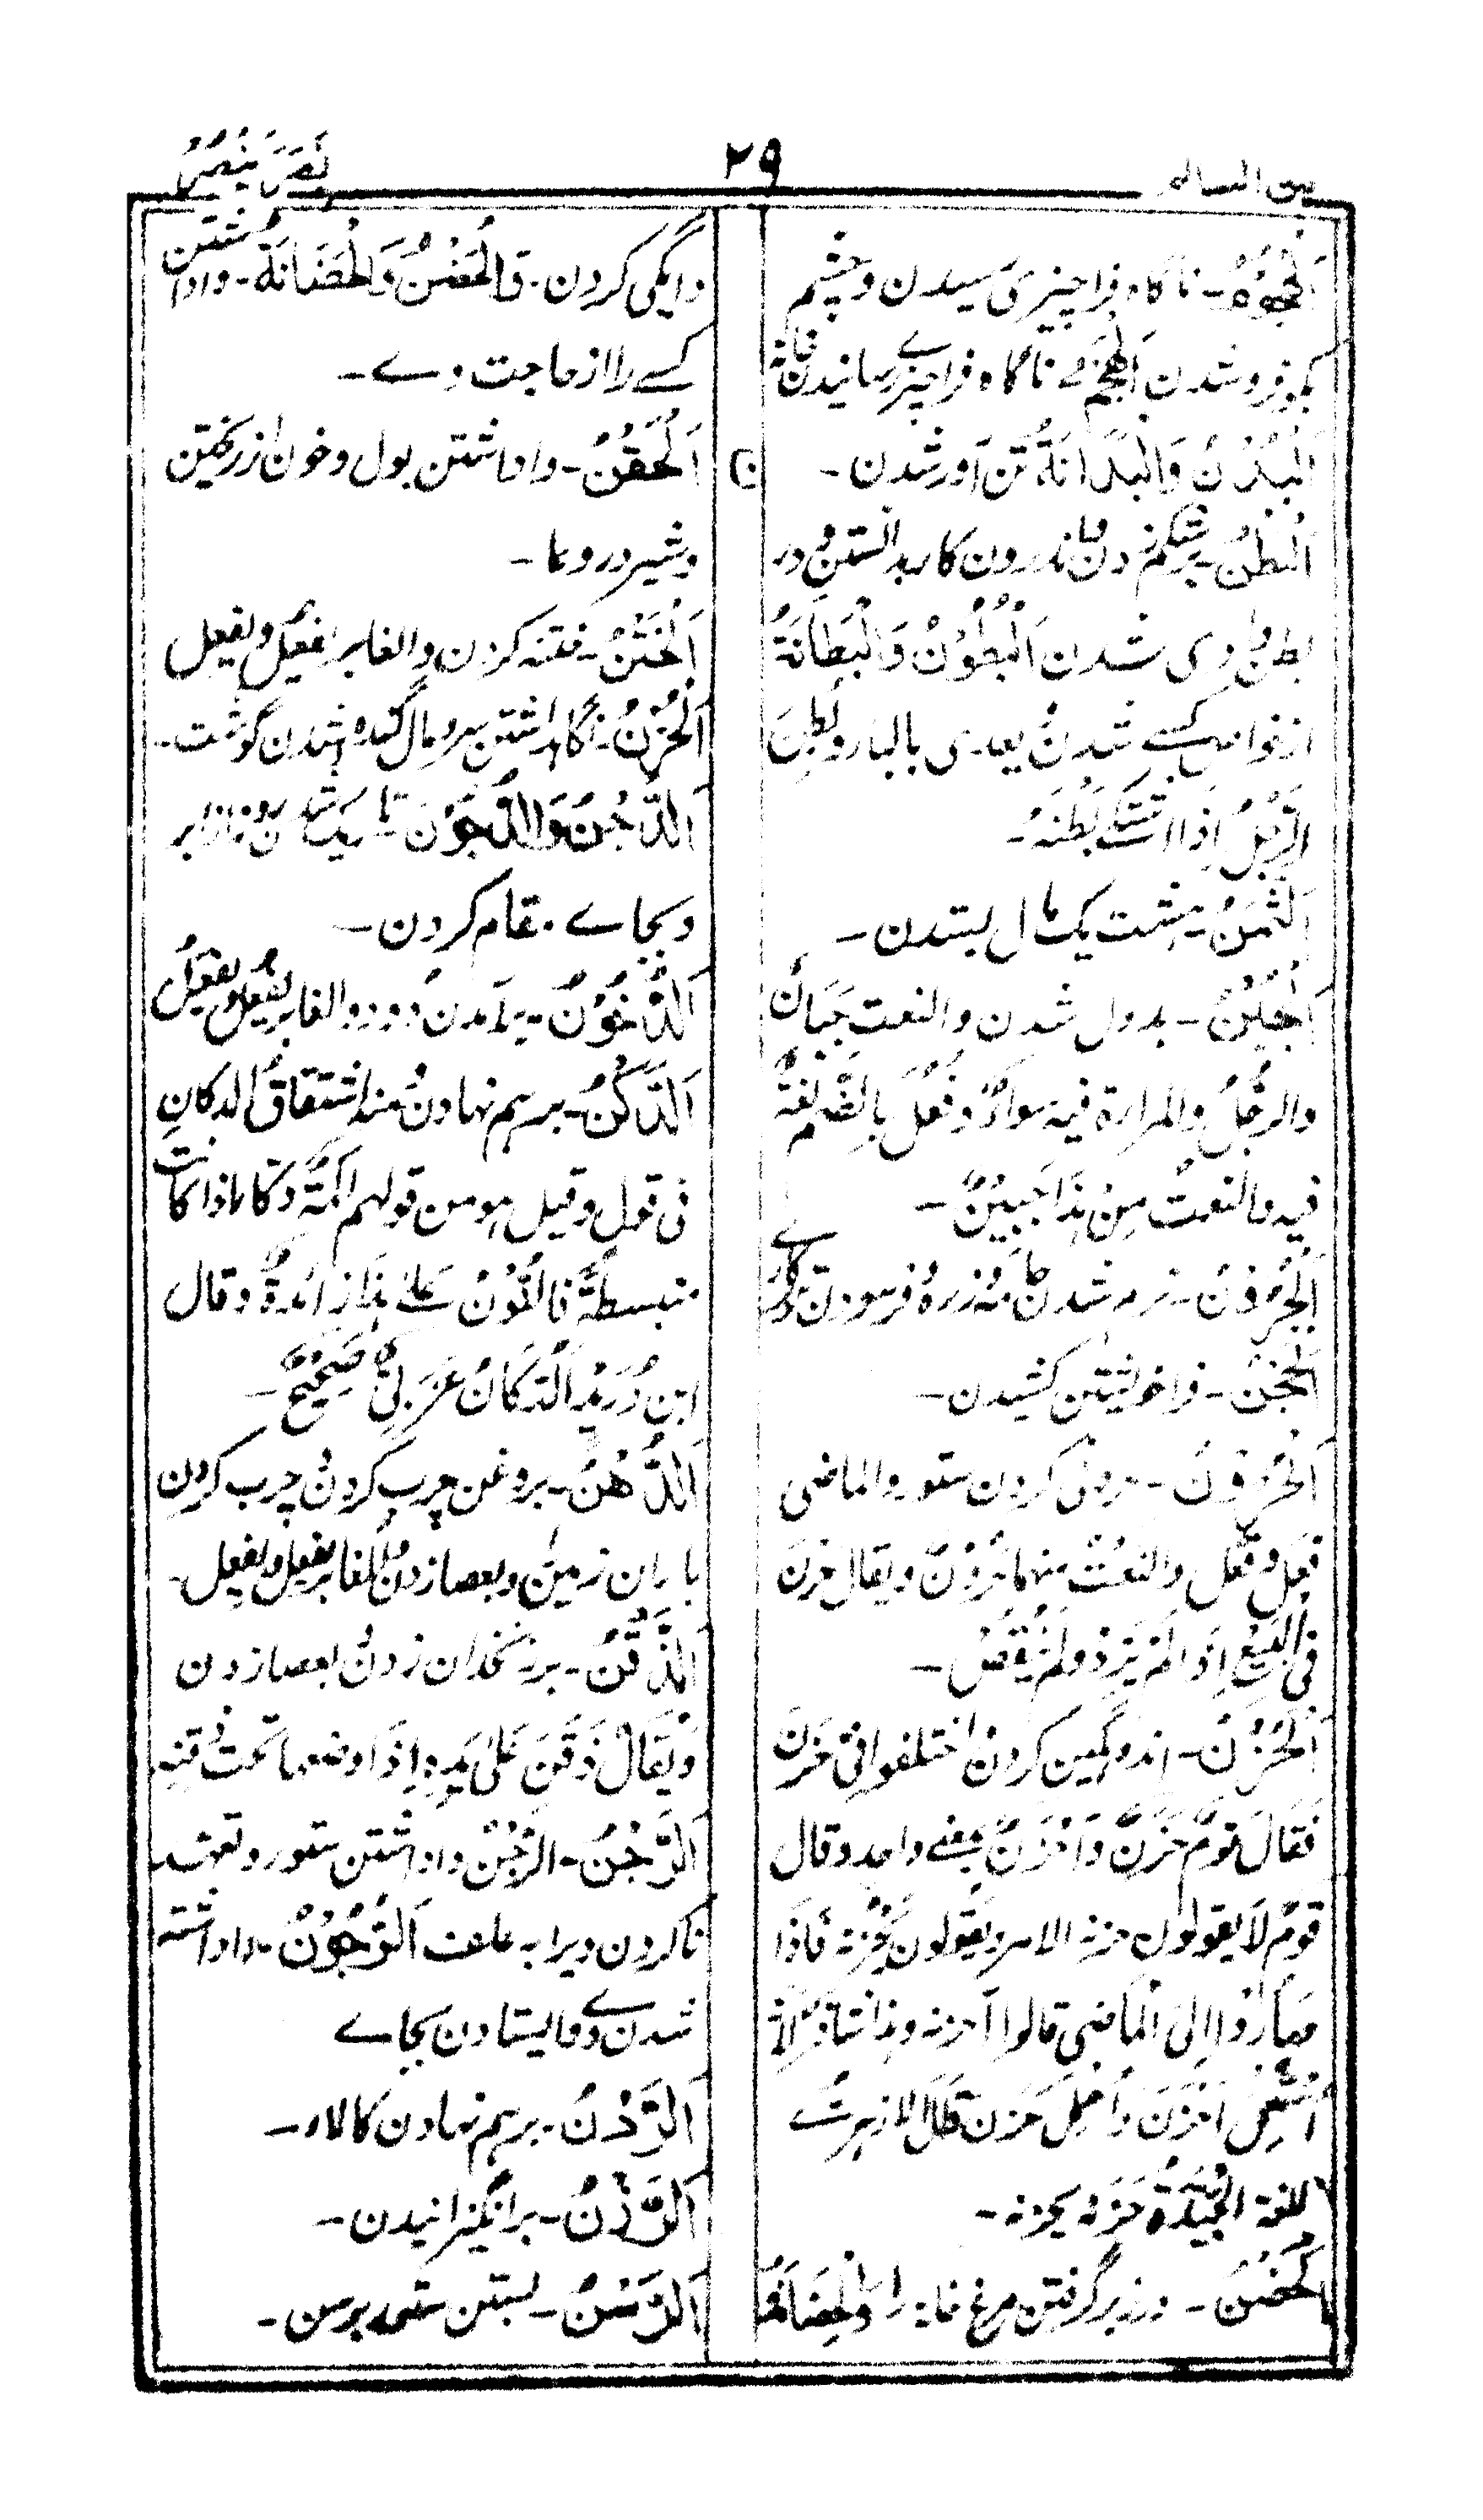 من السالم
۲۹
نَصَرَ يَنْصُرُ
ناگاه فراچیزی رسیدن و چشم
بگو فرو شدن ناگاه فراچیزے رسانیدن
اَلْبُدْنُ وَالْبَدَانَةُ تن آور شدن -
اَلْبَطْنُ - بر شکم زدن و اندرون کار بدانستن و در
شدن اَلْبُطُوْنُ وَالْبَطَانَةُ
از خواص کسے شدن یعدی بالباء و بُطِنَ
الرَّجُلُ اِذَا اشْتَكٰى بَطْنَهٗ -
اَلثَّمْنُ - هشت یک مال بستدن -
اَلْجُبْنُ - بددل شدن والنعت جَبَانٌ
والرجُلُ والمراءة فیه سواءٌ وفَعُلَ بِالضَّمِّ لُغَةٌ
فیه والنعتُ مِنْ هٰذَا جَبِیْنٌ -
اَلْجُرُوْنُ - نرم شدن جامه و زره و فرسودن
اَلْحَجْنُ - فراخویشتن کشیدن -
اَلْحُرُوْنُ - حرونی کردن ستور والماضی
فَعَلَ وفَعُلَ والنعتُ منهما حَرُوْنٌ ویقال حَرَنَ
فِی الْبَیْعِ اِذَا لَمْ یَزِدْ وَلَمْ یَنْقُصْ -
اَلْحُزْنُ - اندوهگین کردن اختلفوا فی حَزَنَ
فَقَالَ قَوْمٌ حَزَنَ وَاَحْزَنَ بمعنے واحد وقال
قَوْمٌ لَا یقولون حزنه الامر ویَقُولون یَحْزُنه فَاِذَا
صَارُوْا اِلَی الْمَاضِی قالوا احزنه وهذا شاذ لانه
اُسْتُعْمِلَ اَحْزَنَ وَاُهْمِلَ حَزَنَ قَالَ الازهرےُّ
اللغة الجَیِّدَةُ حَزَنَهٗ یحزنه -
اَلْحَضْنُ - در زیر گرفتن مرغ خایه را وَالْحِضَانَةُ
دایگی کردن - وَالْحَضْنُ وَالْحَضَانَةُ - واداشتن
کسے را از حاجت وے -
ن
اَلْحَقْنُ - واداشتن بول و خون از ریختن
و شیر در وعا -
اَلْخَتْنُ - ختنه کردن والغابر یفعُل ویفعِل
اَلْخَزْنُ - نگاهداشتن سر و مال گنده شدن گوشت -
اَلدَّجْنُ وَالدُّجُوْنُ - تاریک شدن روز از ابر
و بجاے مقام کردن -
اَلدُّخُوْنُ - برآمدن دود والغابر یفعُل ویفعِل
اَلدَّكْنُ - برهم نهادن ومنه اشتقاق الدکانِ
فی قول وقیل هو من قولهم اَکَمَةٌ دَکَّاءُ اذا کانت
منبسطةً فَالنُّوْنُ عَلٰی هٰذَا زائدةٌ وقال
ابن دُرَیْدٍ اَلدُّکَّانُ عَرَبِیٌّ صَحِیْحٌ -
اَلدَّهْنُ - بروغن چرب کردن و چرب کردن
باران زمین و بعصا زدن والغابر یفعُل ویفعِل -
اَلذَّقْنُ - بر زنخدان زدن و بعصا زدن
وَیُقَالُ ذَقَنَ عَلٰی یَدِهٖ اِذَا وضعها تحت ذقنه
اَلرَّجْنُ - الرَّجْنُ واداشتن ستور و تعهد
ناکردن ویرا به علف اَلرُّجُوْنُ - واداشته
شدن وے و ایستادن بجاے
اَلرَّدْنُ - برهم نهادن کالا -
اَلرَّزْنُ - برانگیزانیدن -
اَلرَّسْنُ - بستن ستور برسن -